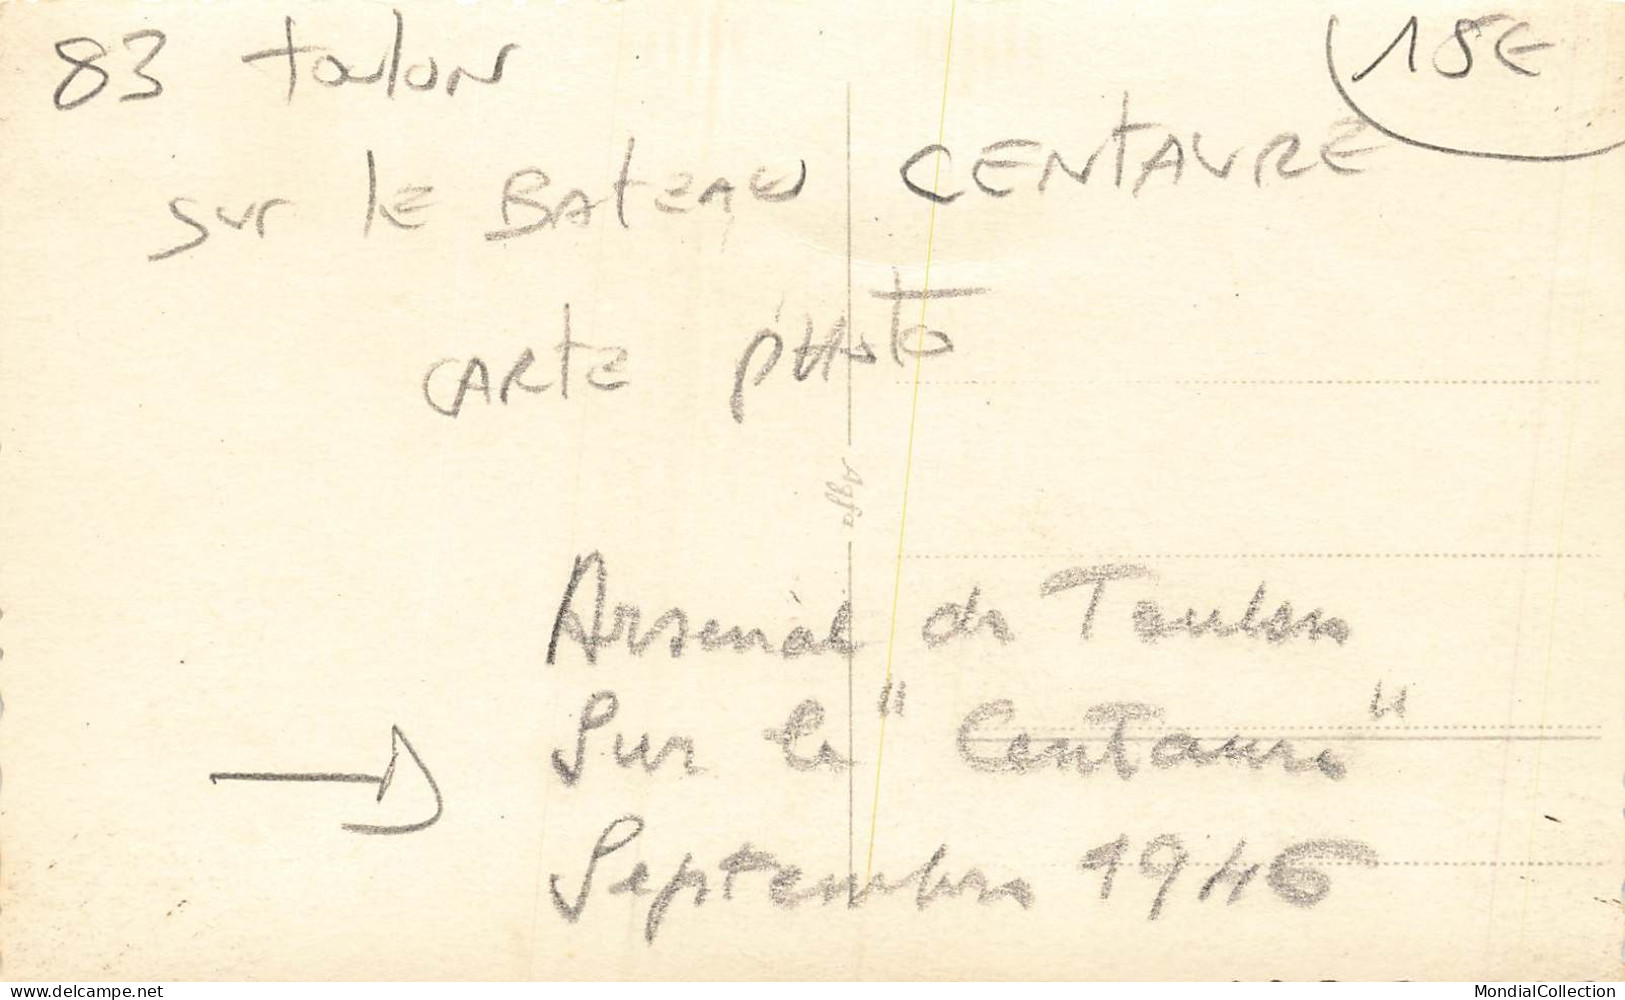 83 toulon
15€
sur le Bateau CENTAURE
CARTE PHOTO
Agfa
Arsenal de Toulon
Sur le "Centaure"
Septembre 1946
www.delcampe.net
MondialCollection